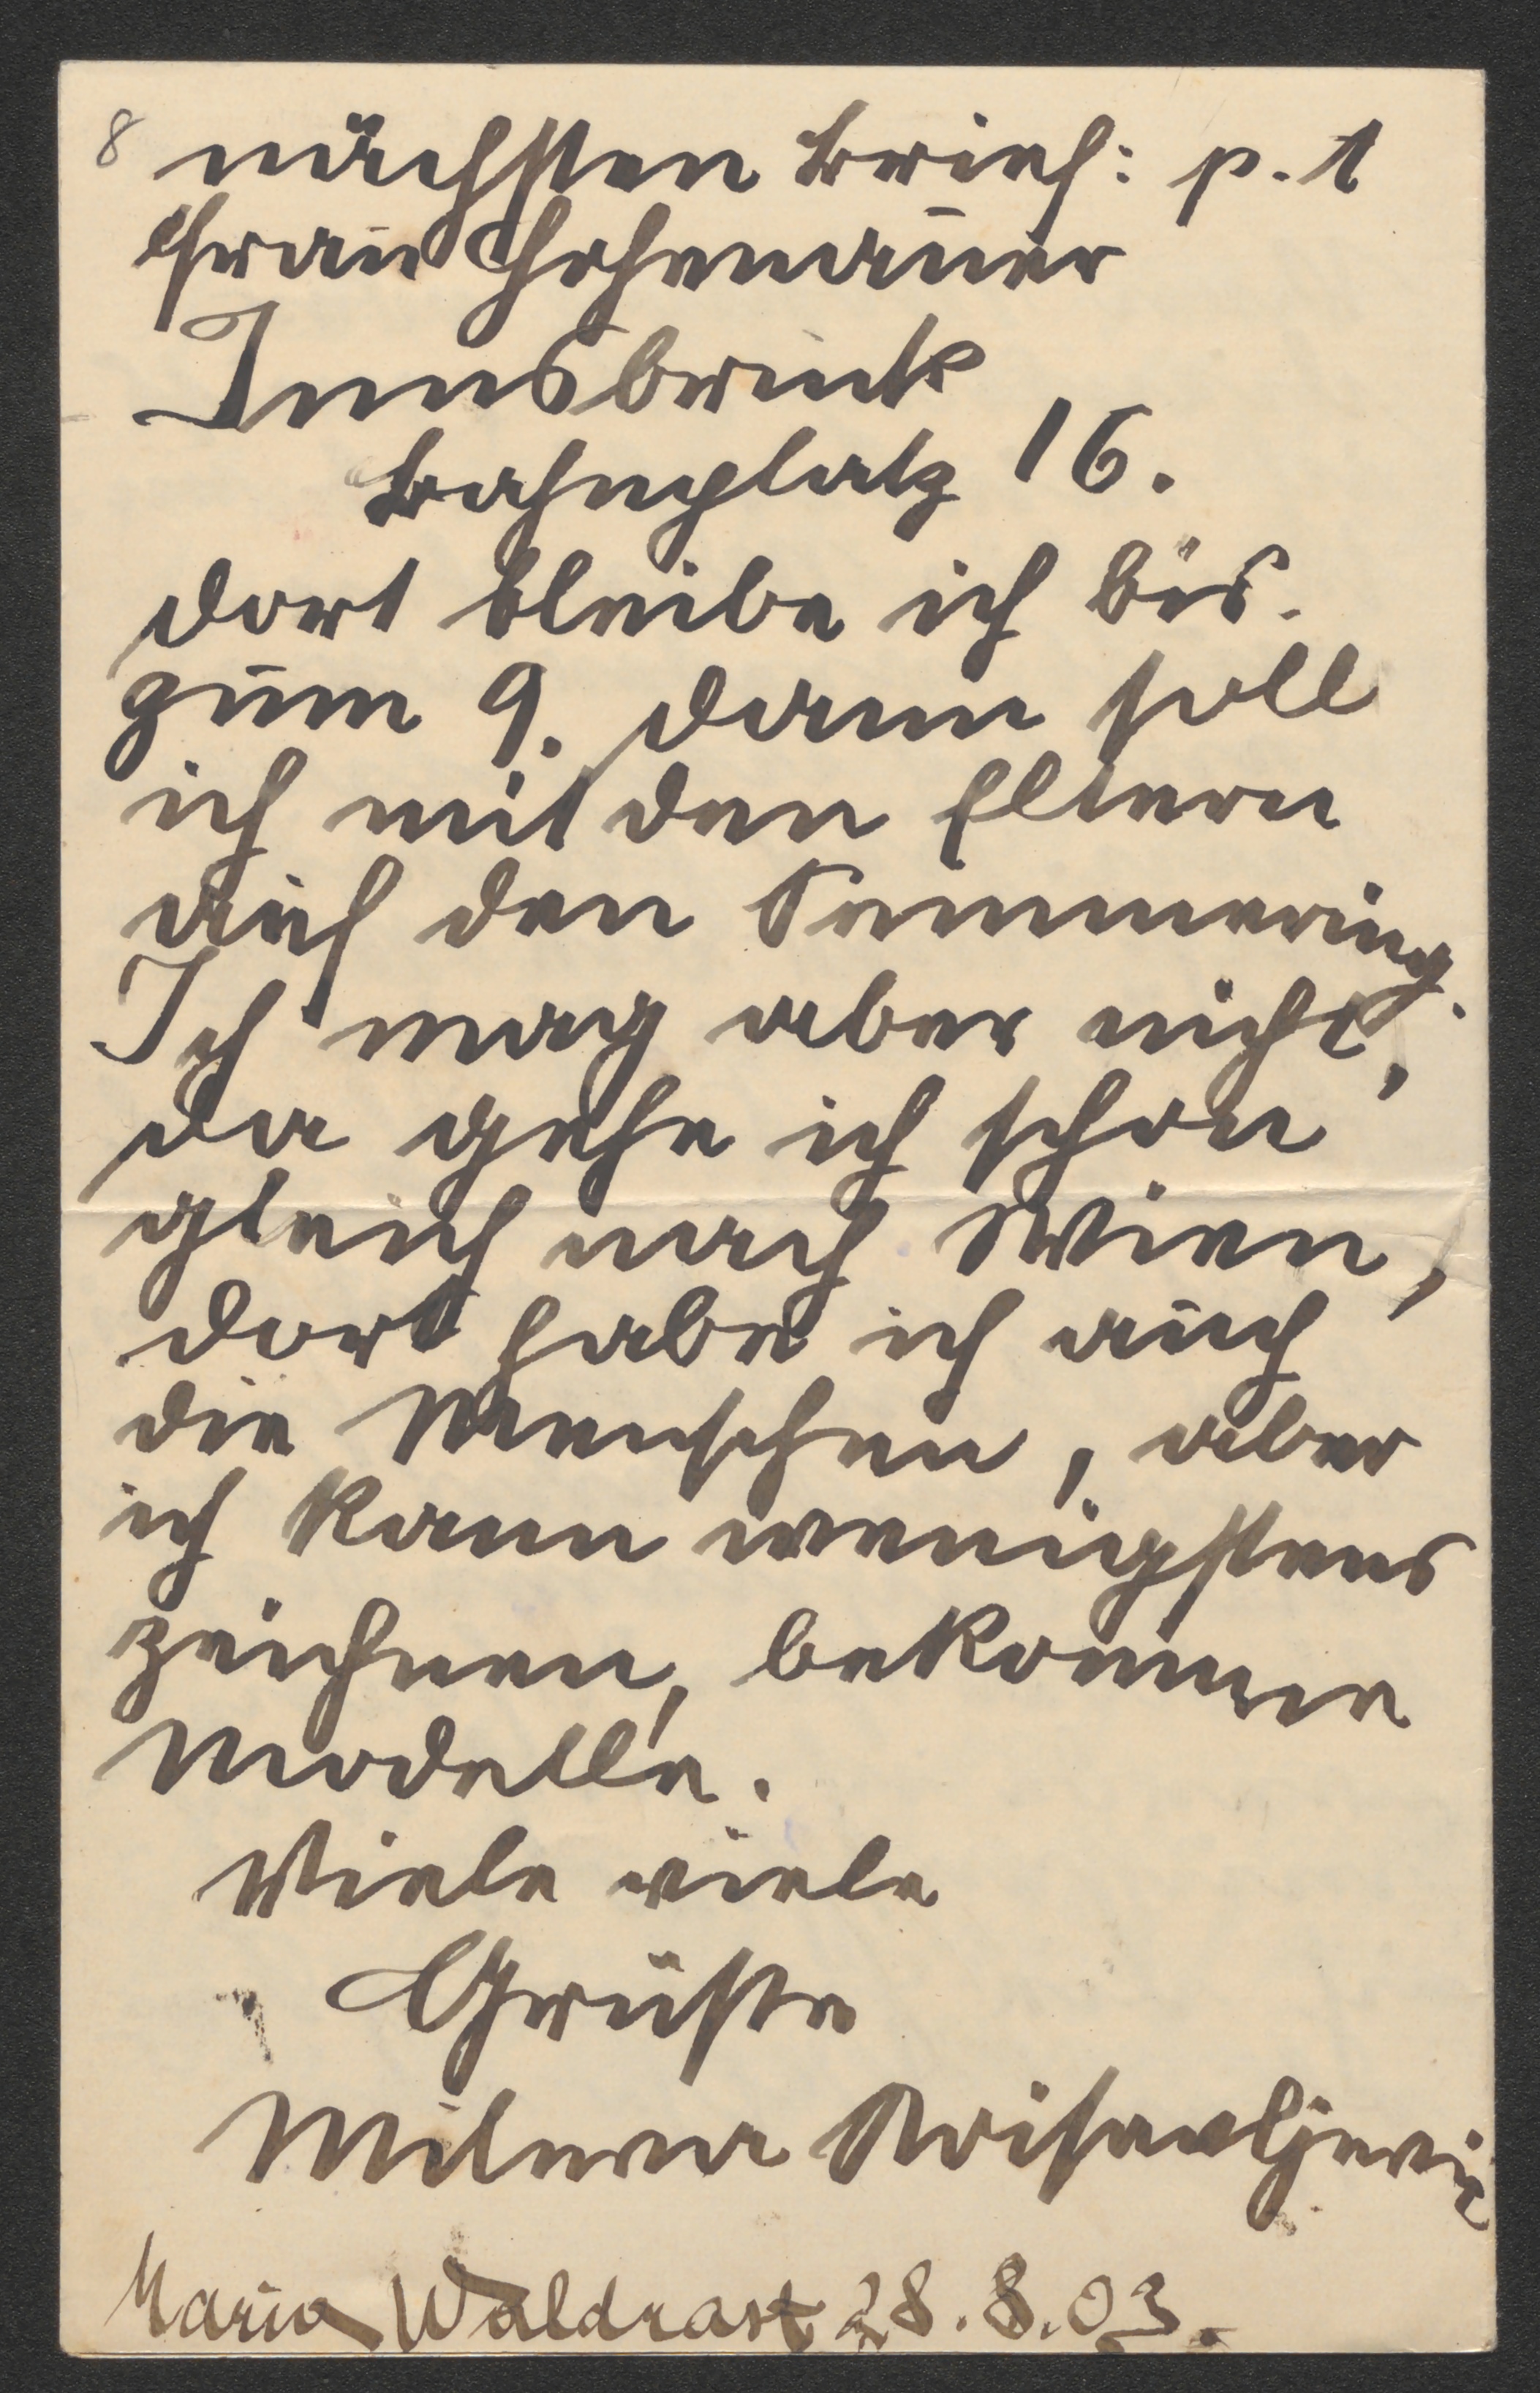 8 nächsten Brief: p. t
Frau Hohenauer
Innsbruck
Bahnplatz 16.
dort bleibe ich bis.
zum 9. dann soll
ich mit den Eltern
auf den Semmering.
Ich mag aber nicht,
da gehe ich schon
gleich nach Wien,
dort habe ich auch
die Menschen, aber
ich kann wenigstens
zeichnen, bekomme
Modelle.
Viele viele
Grüße
Mileva Roisavljevic
Maria Waldrast 28.8.03.